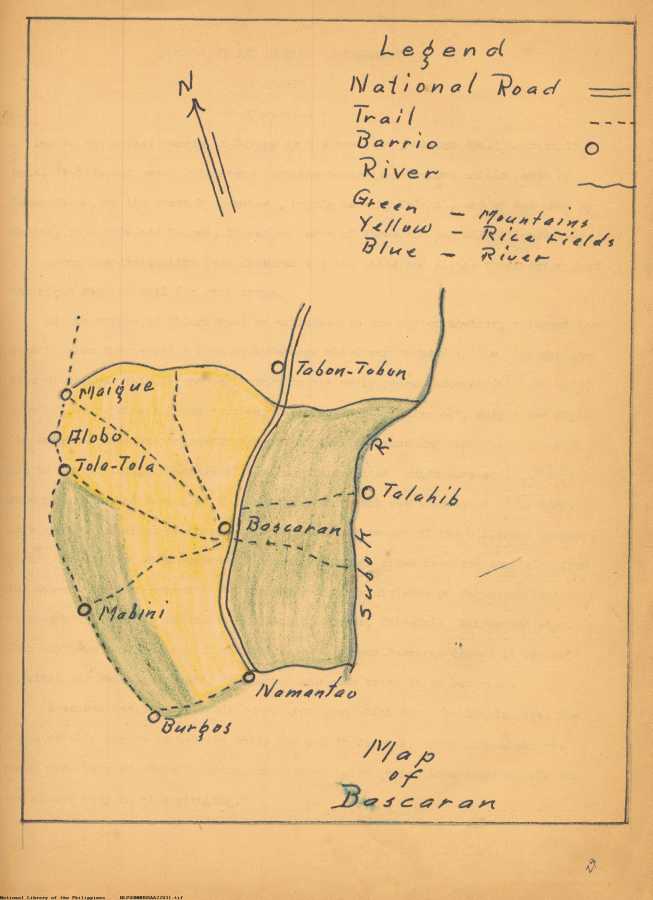 Legend
N
National Road
Trail
Barrio
River
Green - Mountains
Yellow - Rice Fields
Blue - River
Tabon-Tabon
Maigue
Alobo
Tola-Tola
R.
Talahib
Bascaran
Subok
Mabini
Namantao
Burgos
Map
of
Bascaran
National Library of the Philippines